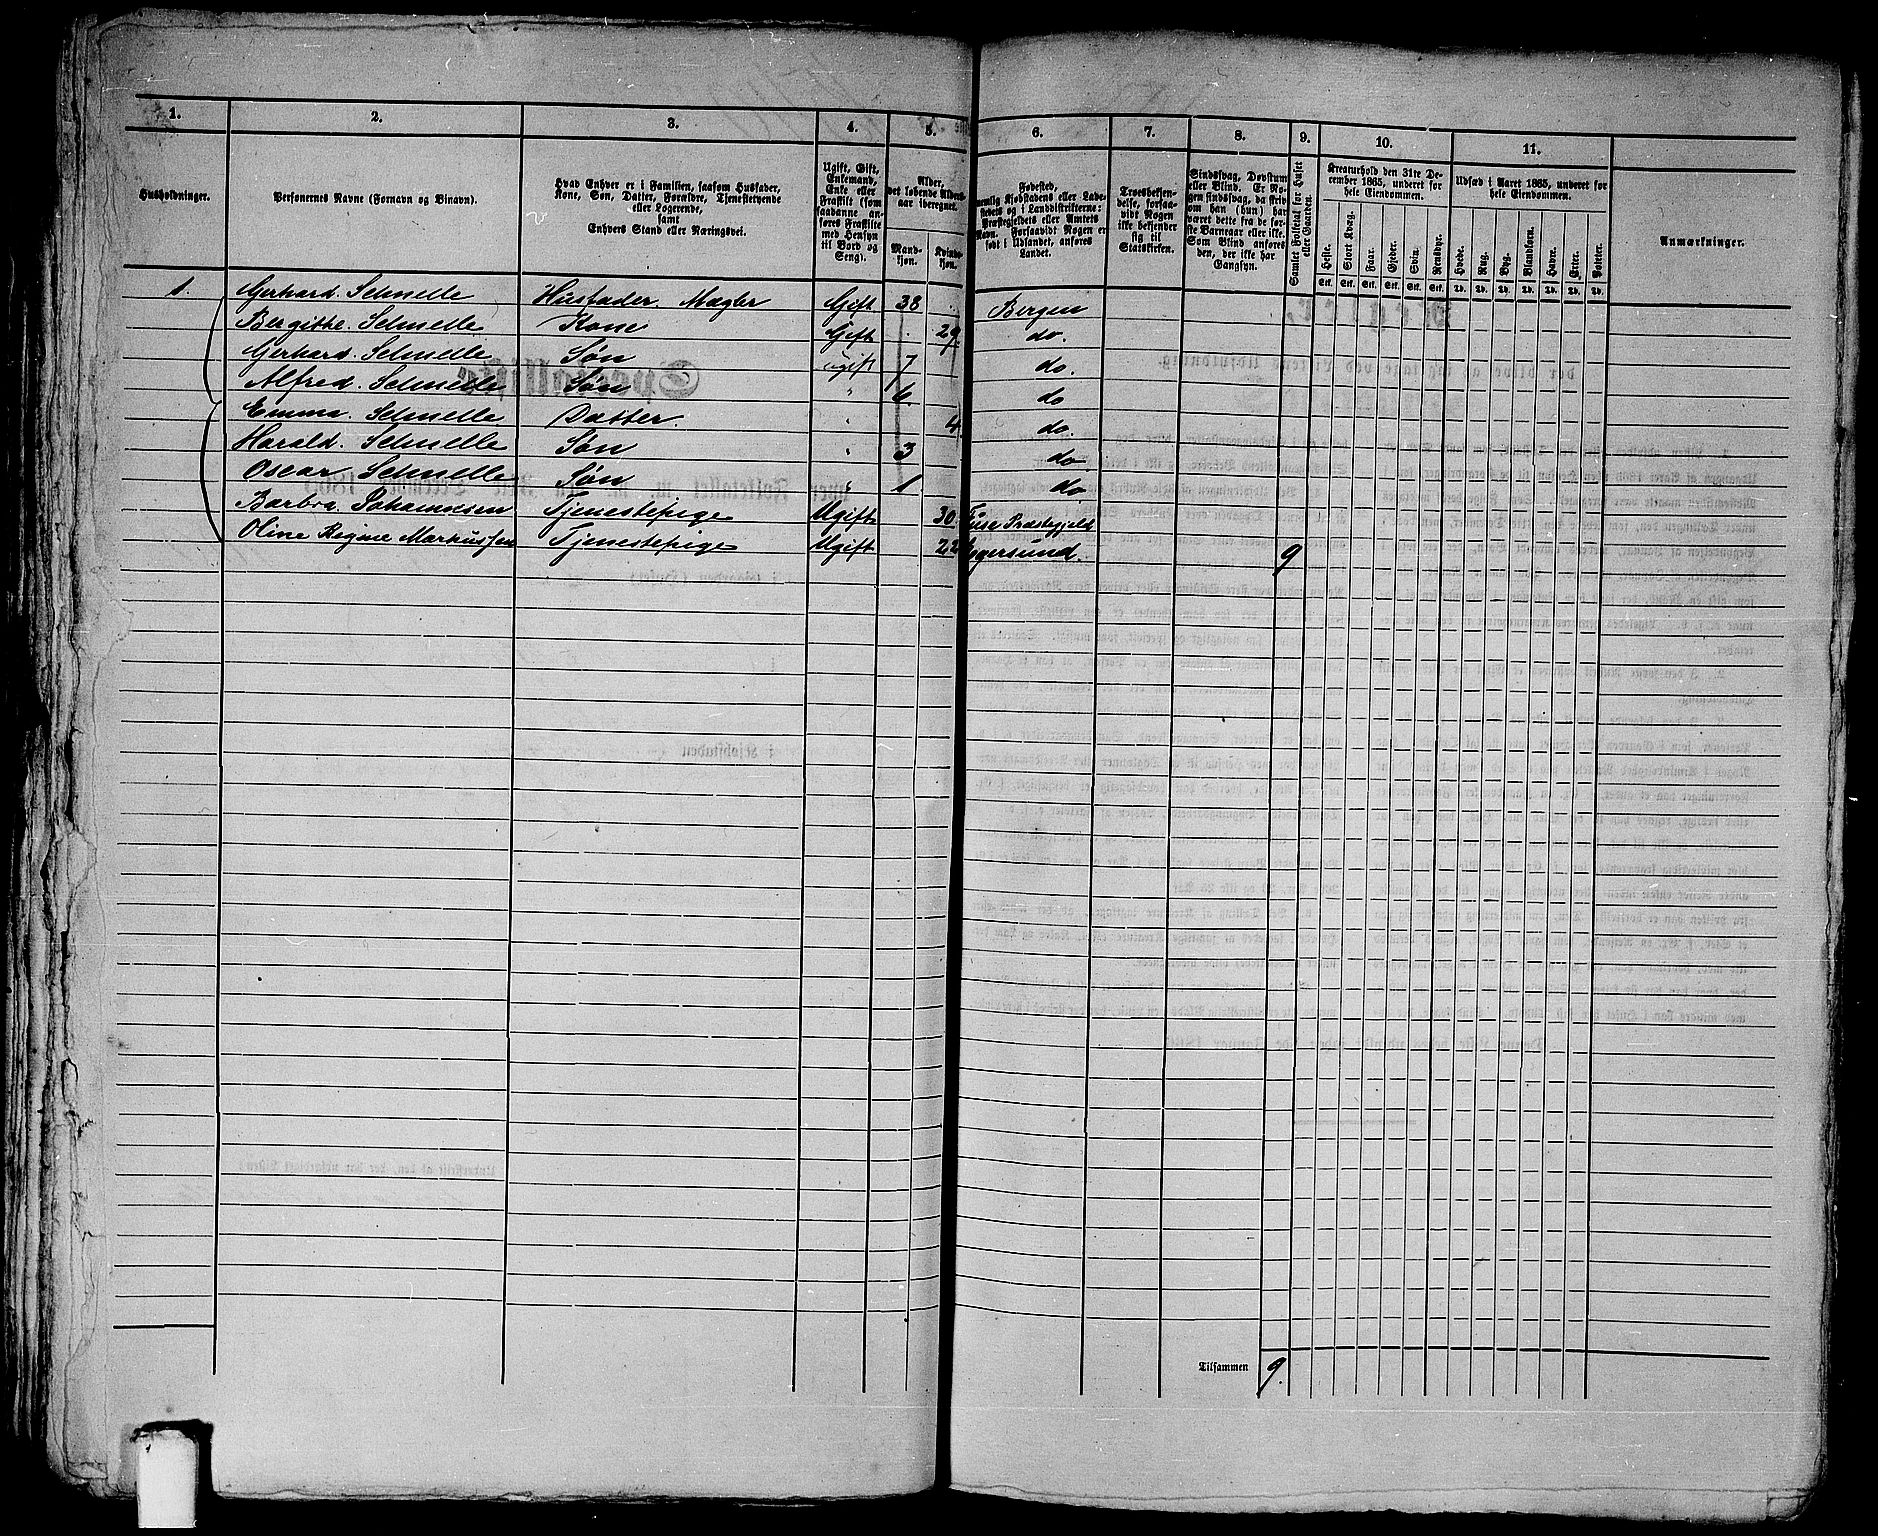 1. 2. 3. 4. 5. 6. 7. 8. 9. 10. 11.
Husholdninger.
Personernes Navne (Fornavn og Binavn).
Hvad Enhver er i Familien, saasom Husfader,
Kone, Søn, Datter, Forældre, Tjenestetyende
eller Logerende,
samt
Enhvers Stand eller Næringsvei.
Ugift, Gift,
Enkemand,
Enke eller
Fraskilt (som
saadanne an-
føres Fraskilte
med Hensyn
til Bord og
Seng).
Alder,
det løbende Alders-
aar iberegnet.
Mand-
kjøn.
Kvinde-
kjøn.
Fødested,
nemlig Kjøbstadens eller Lade-
stedets og i Landdistrikterne:
Præstegjeldets eller Amtets
Navn. Forsaavidt Nogen er
født i Udlandet, anføres
Landet.
Troesbekjen-
delse, forsaa-
vidt Nogen
ikke bekjender
sig til
Statskirken.
Sindssvag, Døvstum
eller Blind. Er No-
gen sindssvag, da skriv
om han (hun) har
været dette fra de før-
ste Barneaar eller ikke.
Som Blind anføres
den, der ikke har
Gangsyn.
Samlet Folketal for Huset
eller Gaarden.
Kreaturhold den 31te De-
cember 1865, underet for
hele Eiendommen.
Heste. Stort Kvæg. Faar. Gjeder. Svin. Rensdyr.
Stk. Stk. Stk. Stk. Stk. Stk.
Udsæd i Aaret 1865, underet for
hele Eiendommen.
Hvede. Rug. Byg. Blandkorn. Havre. Erter. Poteter.
Td. Td. Td. Td. Td. Td. Td.
Anmærkninger.
1. Gerhard. Schnelle Husfader. Mægler Gift 38 Bergen
Bergitthe. Schnelle Kone Gift 29 do.
Gerhard. Schnelle Søn ugift 7 do.
Alfred. Schnelle Søn " 6. do
Emma. Schnelle Datter. " 4. do.
Harald. Schnelle Søn " 3 do
Oscar Schnelle Søn " 1 do
Barbra Johannesen Tjenestepige Ugift 30. Fuse Præstegjeld
Oline Regine Markussen Tjenestepige Ugift 22 Eggersund. 9
Tilsammen 9.